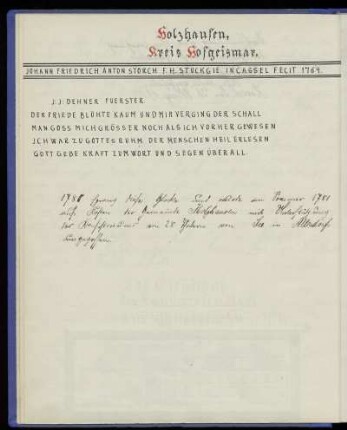 Holzhausen,
Kreis Hofgeismar.
JOHANN FRIEDRICH ANTON STORCH F.H. STÜCKGIE. IN CASSEL FECIT 1764.
J.J. DEHNER FUERSTER
DER FRIEDE BLÜHTE KAUM UND MIR VERGING DER SCHALL
MAN GOSS MICH GRÖSSER NOCH ALS ICH VORHER GEWESEN
ICH WAR ZU GOTTES RUHM DER MENSCHEN HEIL ERLESEN
GOTT GEBE KRAFT ZUM WORT UND SEGEN ÜBERALL.
1780 sprang diese Glocke und wurde im Sommer 1781
auf Kosten der Gemeinde Holzhausen mit Unterstützung
der am 28 in
umgegossen.